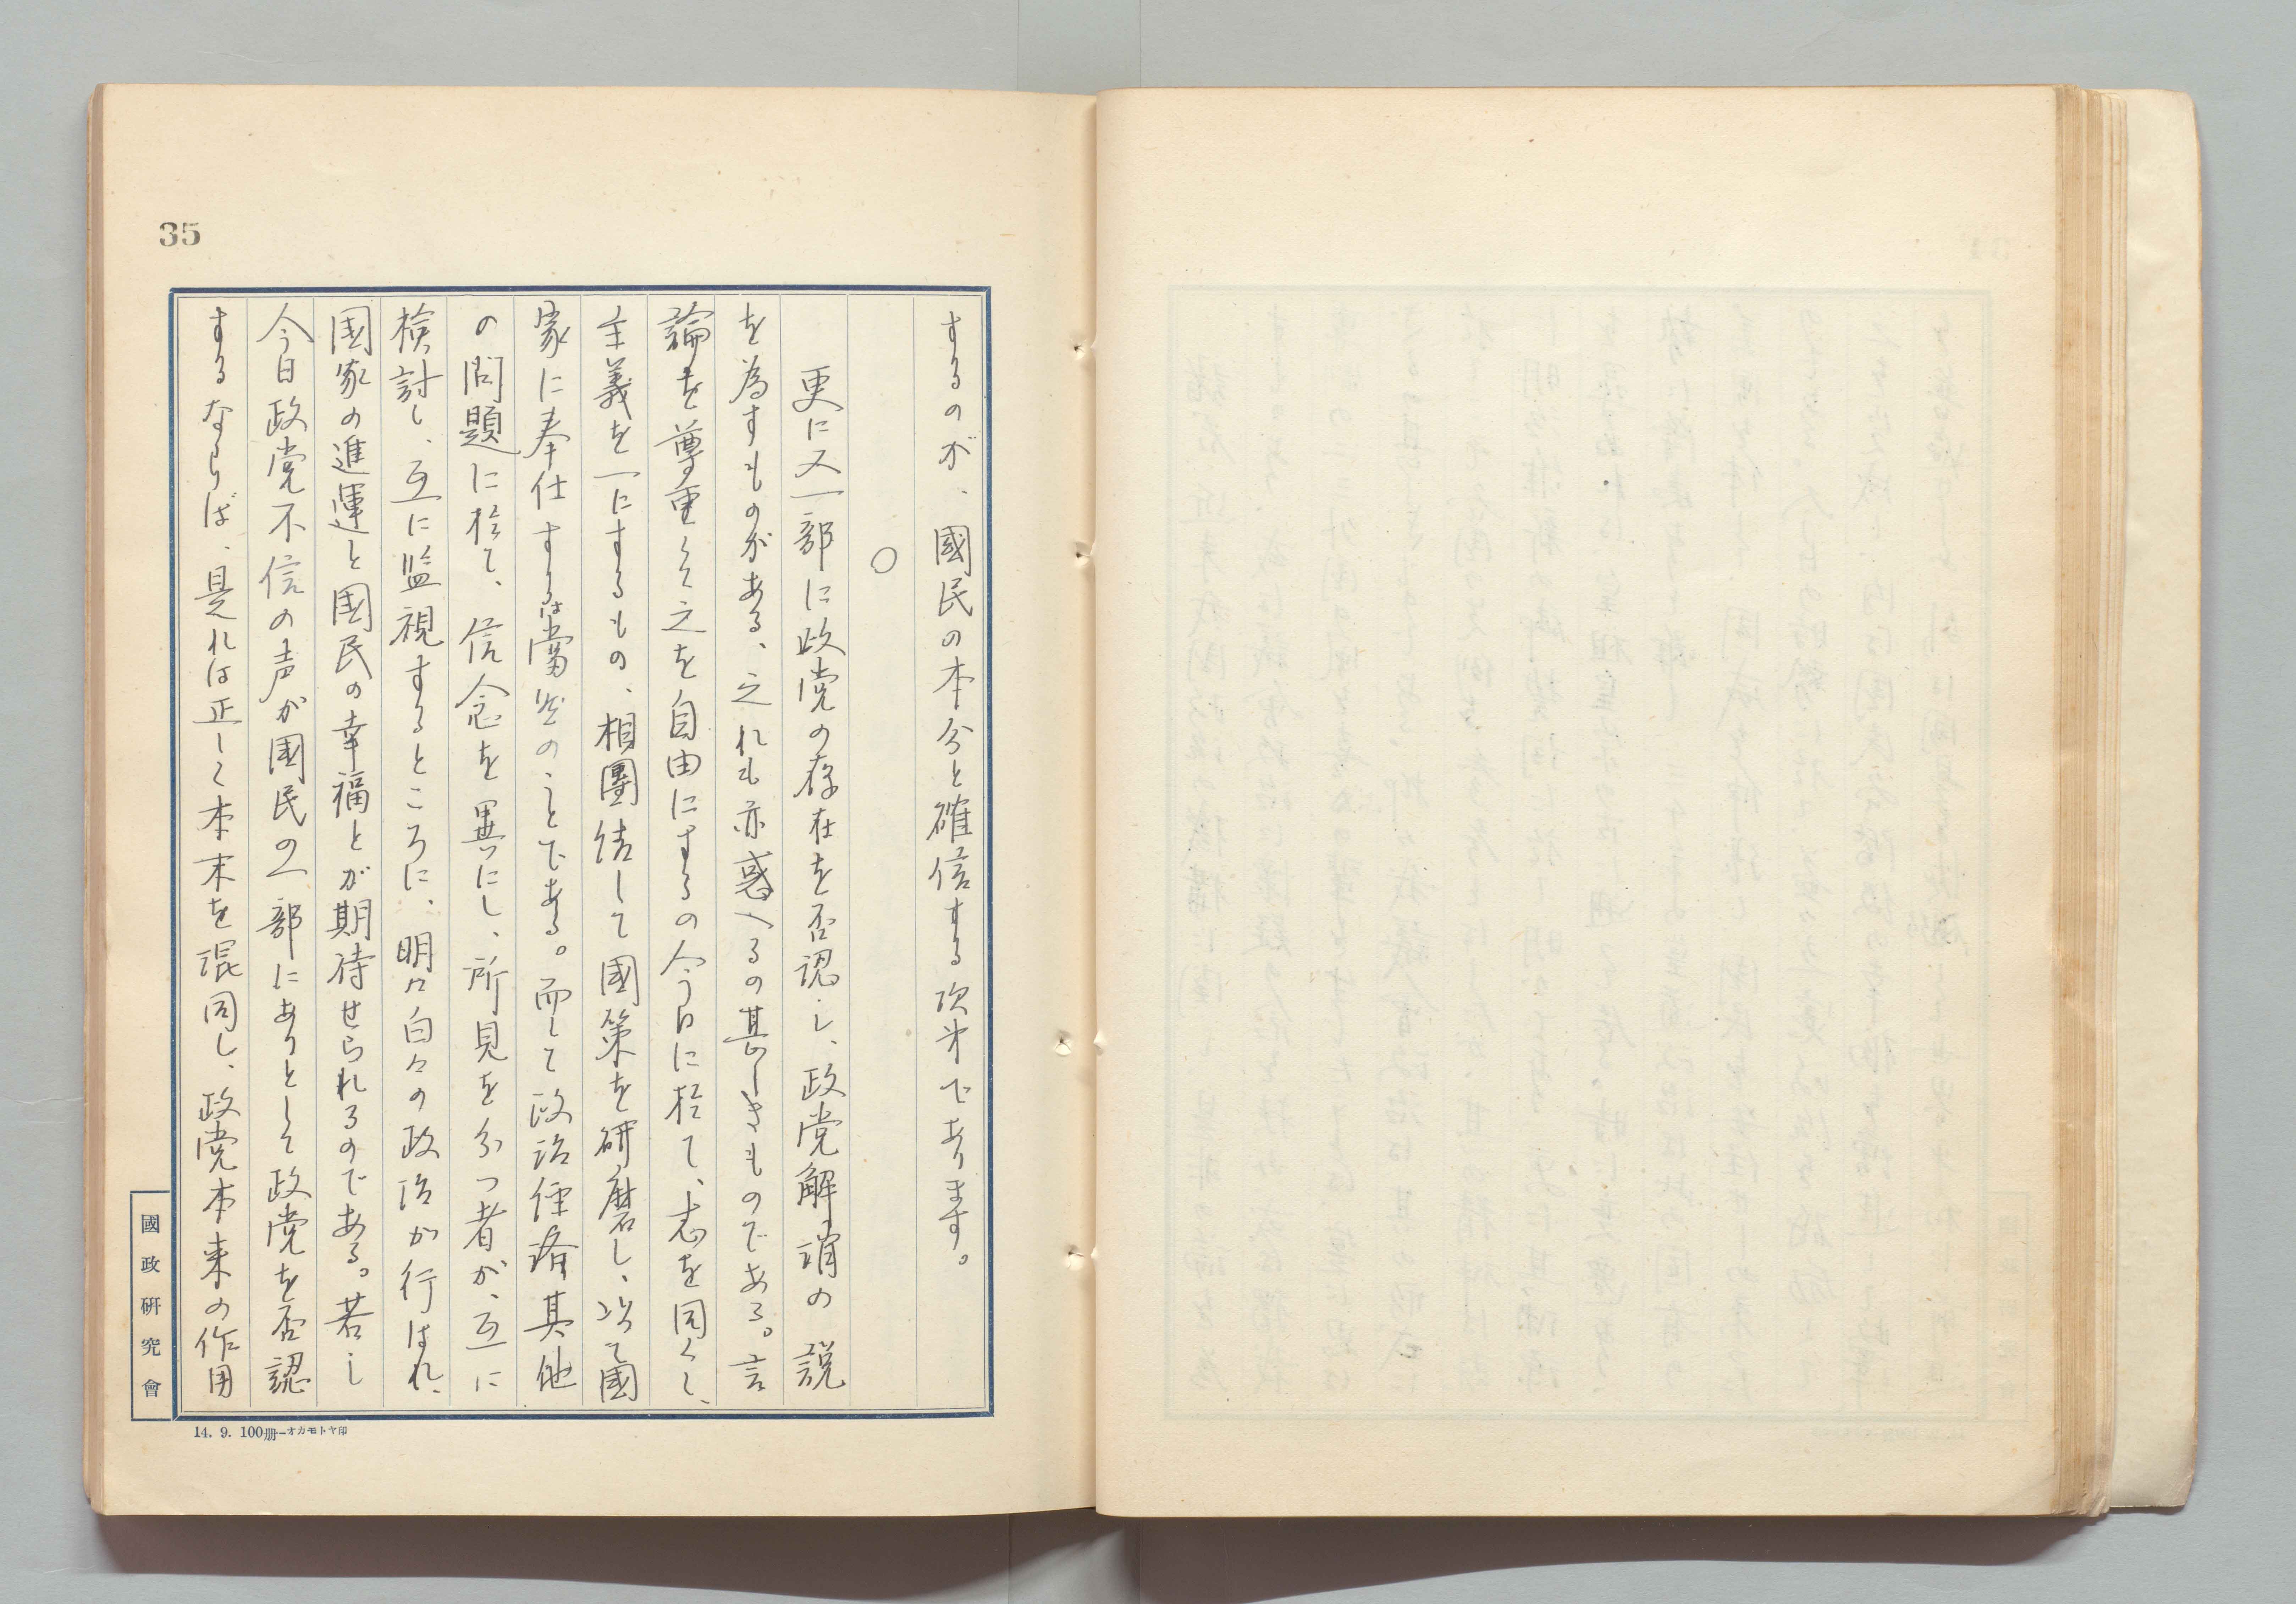 35
するのが、國民の本分と確信する次才であります。
○
更に又一部に政党の存在を否認し、政党解消の説
を為すものがある、之れも亦惑へるの甚しきものである。言
論を尊重し之を自由にするの今日に於て、志を同くし、
主義を一にするもの、相團結して國策を研磨し、以て國
家に奉仕するは當然のことである。而して政治経済其他
の問題に於て、信念を異にし、所見を分つ者が、互に
検討し、互に監視するところに、明々白々の政治が行はれ、
国家の進運と国民の幸福とが期待せられるのである。若し
今日政党不信の声が國民の一部にありとして政党を否認
するならば、是れは正しく本末を混同し、政党本来の作用
國政研究會
14. 9. 100册—オカモトヤ印